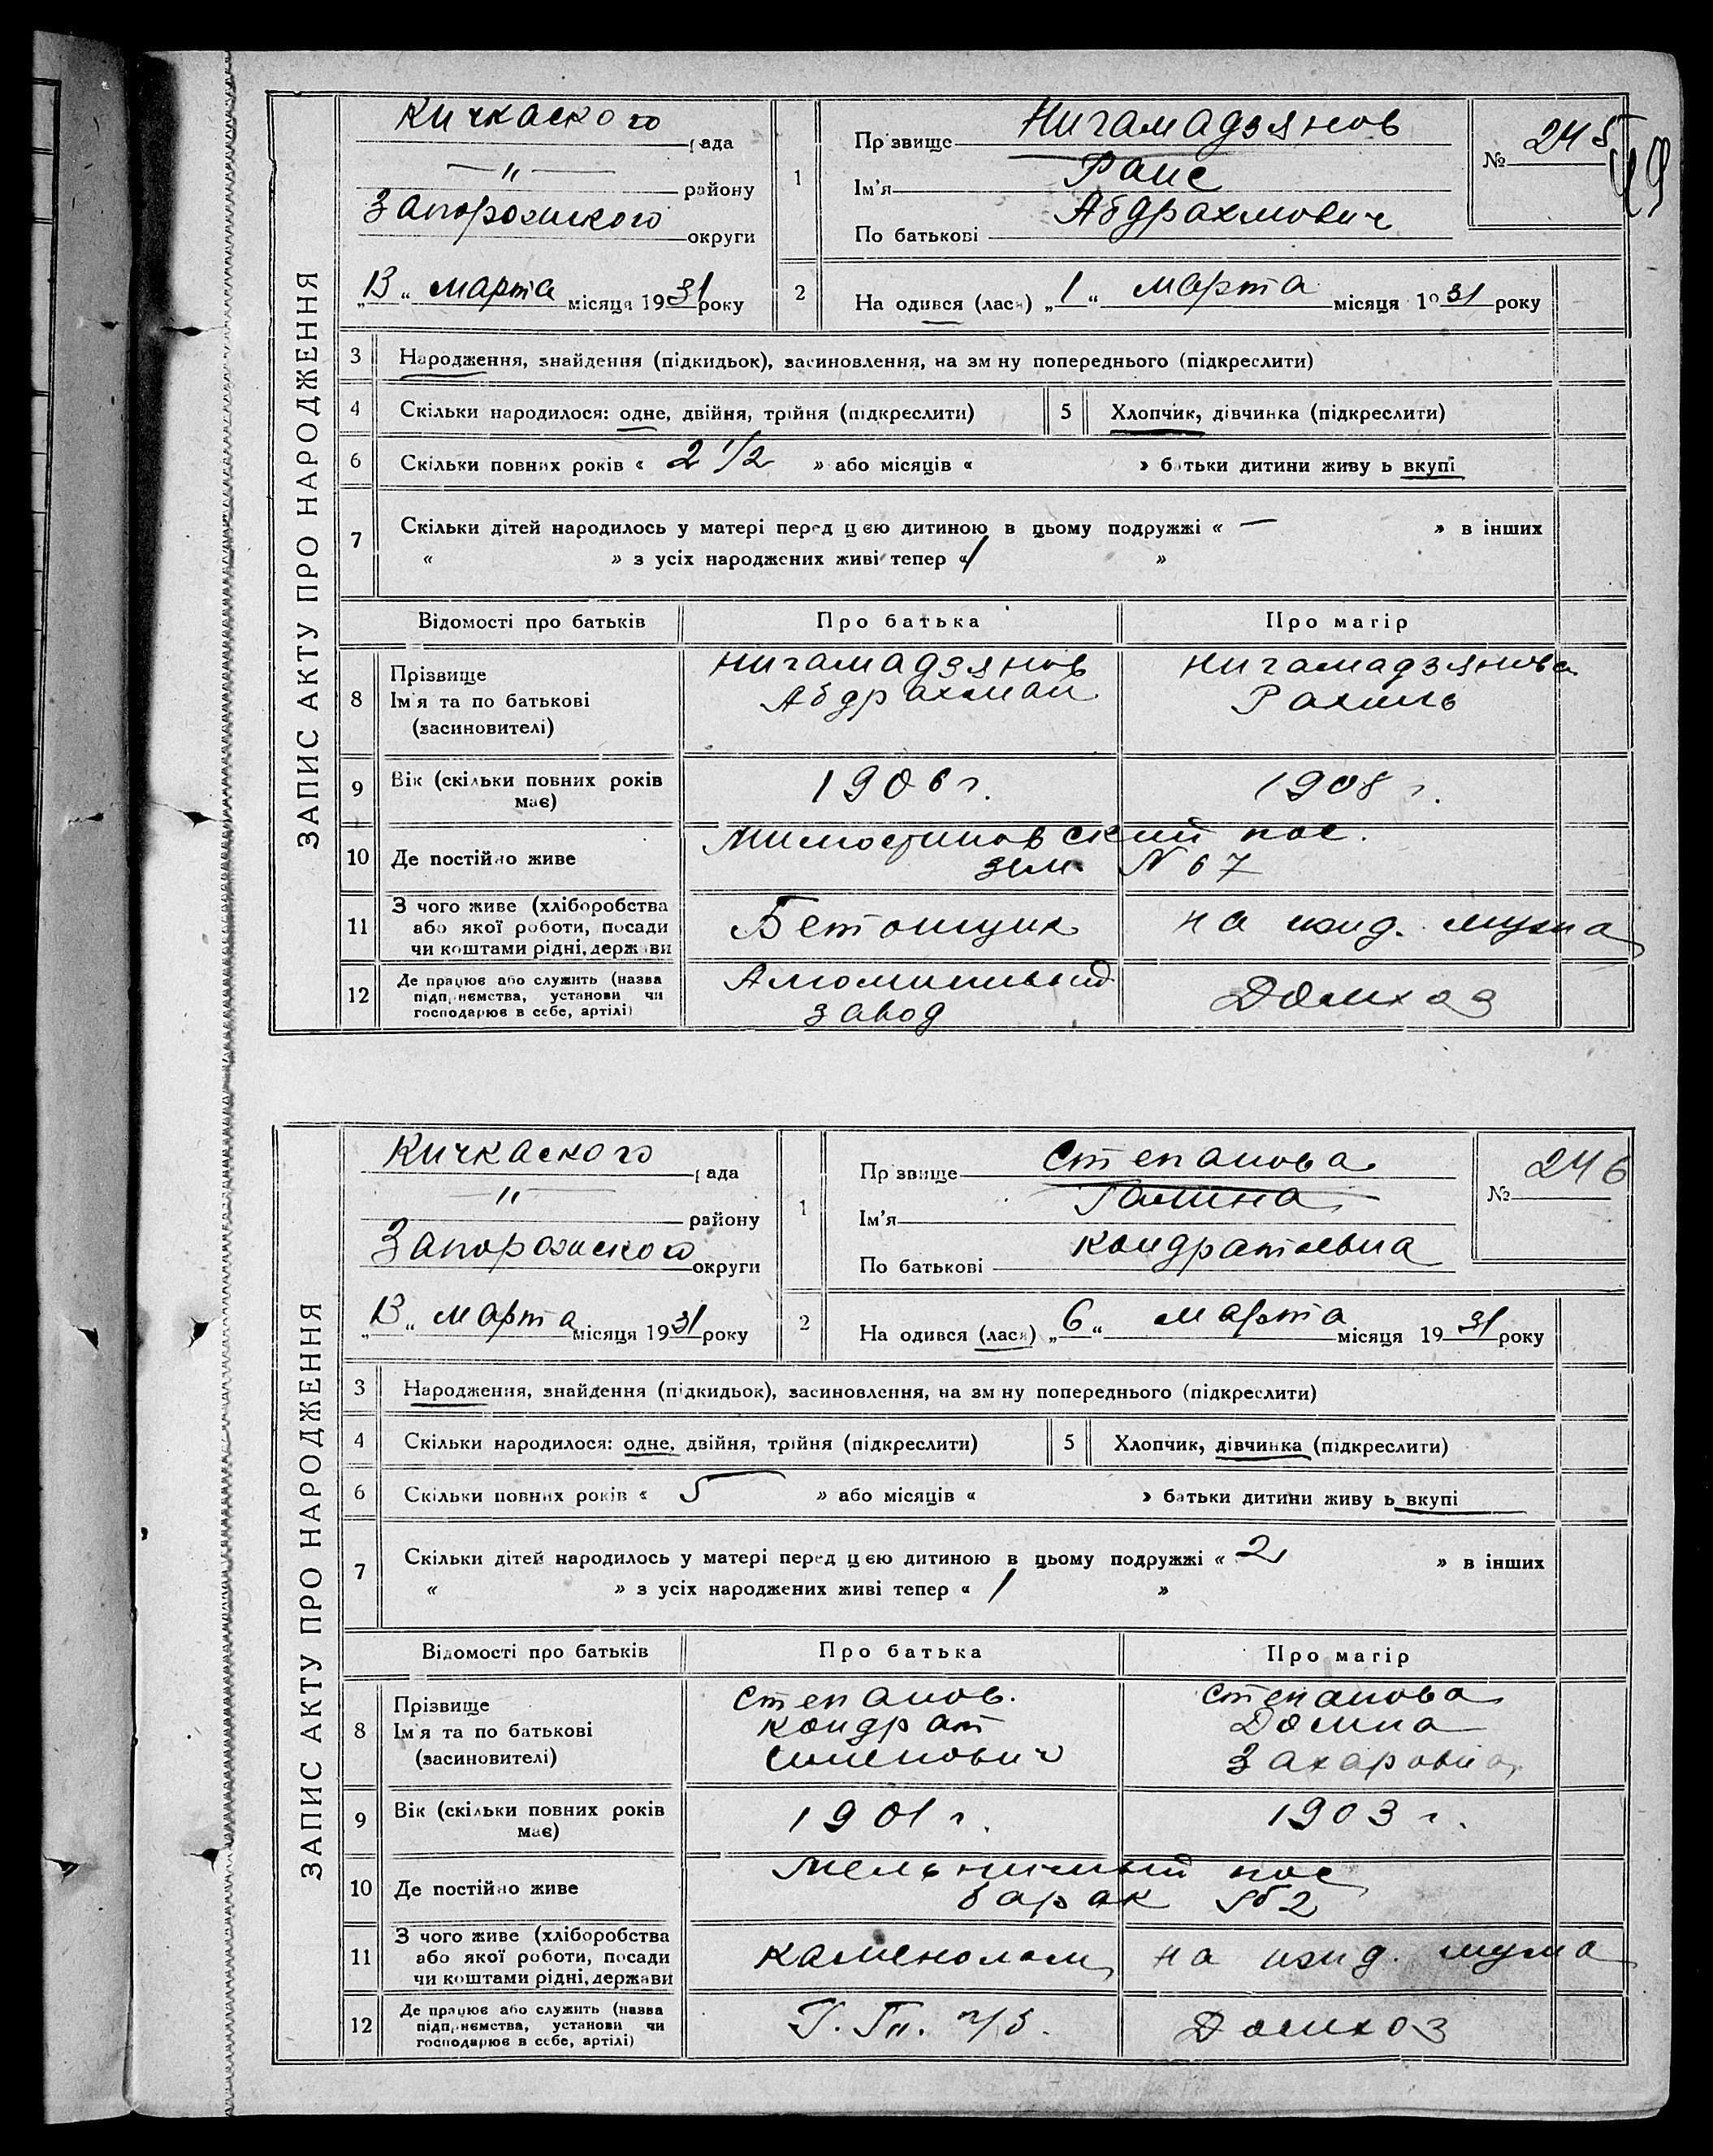 ЗАПИС АКТУ ПРО НАРОДЖЕННЯ
Кичкаского рада
—〃— району
Запорожского округи
„13“ марта місяця 1931 року
1 Прізвище Нигамадзянов
Ім'я Раис
По батькові Абдрахмович
№ 245
49
2 На одився (лася) „1“ марта місяця 1931 року
3 Народження, знайдення (підкидьок), засиновлення, на зм ну попереднього (підкреслити)
4 Скільки народилося: одне, двійня, трійня (підкреслити) 5 Хлопчик, дівчинка (підкреслити)
6 Скільки повних років « 2 1/2 » або місяців « » батьки дитини живу ь вкупі
7 Скільки дітей народилось у матері перед цією дитиною в цьому подружжі « — » в інших
« » з усіх народжених живі тепер « 1 »
Відомості про батьків Про батька Про матір
8 Прізвище Ім'я та по батькові (засиновителі)
Нигамадзянов Абдрахман
Нигамадзянова Рахиль
9 Вік (скільки повних років має) 1906 г. 1908 г.
10 Де постійно живе пос.
зем. N 67
11 З чого живе (хліборобства або якої роботи, посади чи коштами рідні, держави Бетонщик на ижд. мужа
12 Де працює або служить (назва підприємства, установи чи господарює в себе, артілі) Алюминиевый завод Домхоз
ЗАПИС АКТУ ПРО НАРОДЖЕННЯ
Кичкаского рада
—〃— району
Запорожского округи
„13“ марта місяця 1931 року
1 Прізвище Степанова
Ім'я Галина
По батькові Кондратьевна
№ 246
2 На одився (лася) „6“ марта місяця 1931 року
3 Народження, знайдення (підкидьок), засиновлення, на зм ну попереднього (підкреслити)
4 Скільки народилося: одне, двійня, трійня (підкреслити) 5 Хлопчик, дівчинка (підкреслити)
6 Скільки повних років « 5 » або місяців « » батьки дитини живу ь вкупі
7 Скільки дітей народилось у матері перед цією дитиною в цьому подружжі « 2 » в інших
« » з усіх народжених живі тепер « 1 »
Відомості про батьків Про батька Про матір
8 Прізвище Ім'я та по батькові (засиновителі)
Степанов. Кондрат Семенович
Степанова Домна Захаровна
9 Вік (скільки повних років має) 1901 г. 1903 г.
10 Де постійно живе Мельничный пос
барак №2
11 З чого живе (хліборобства або якої роботи, посади чи коштами рідні, держави каменолом на ижд. мужа
12 Де працює або служить (назва підприємства, установи чи господарює в себе, артілі) Домхоз